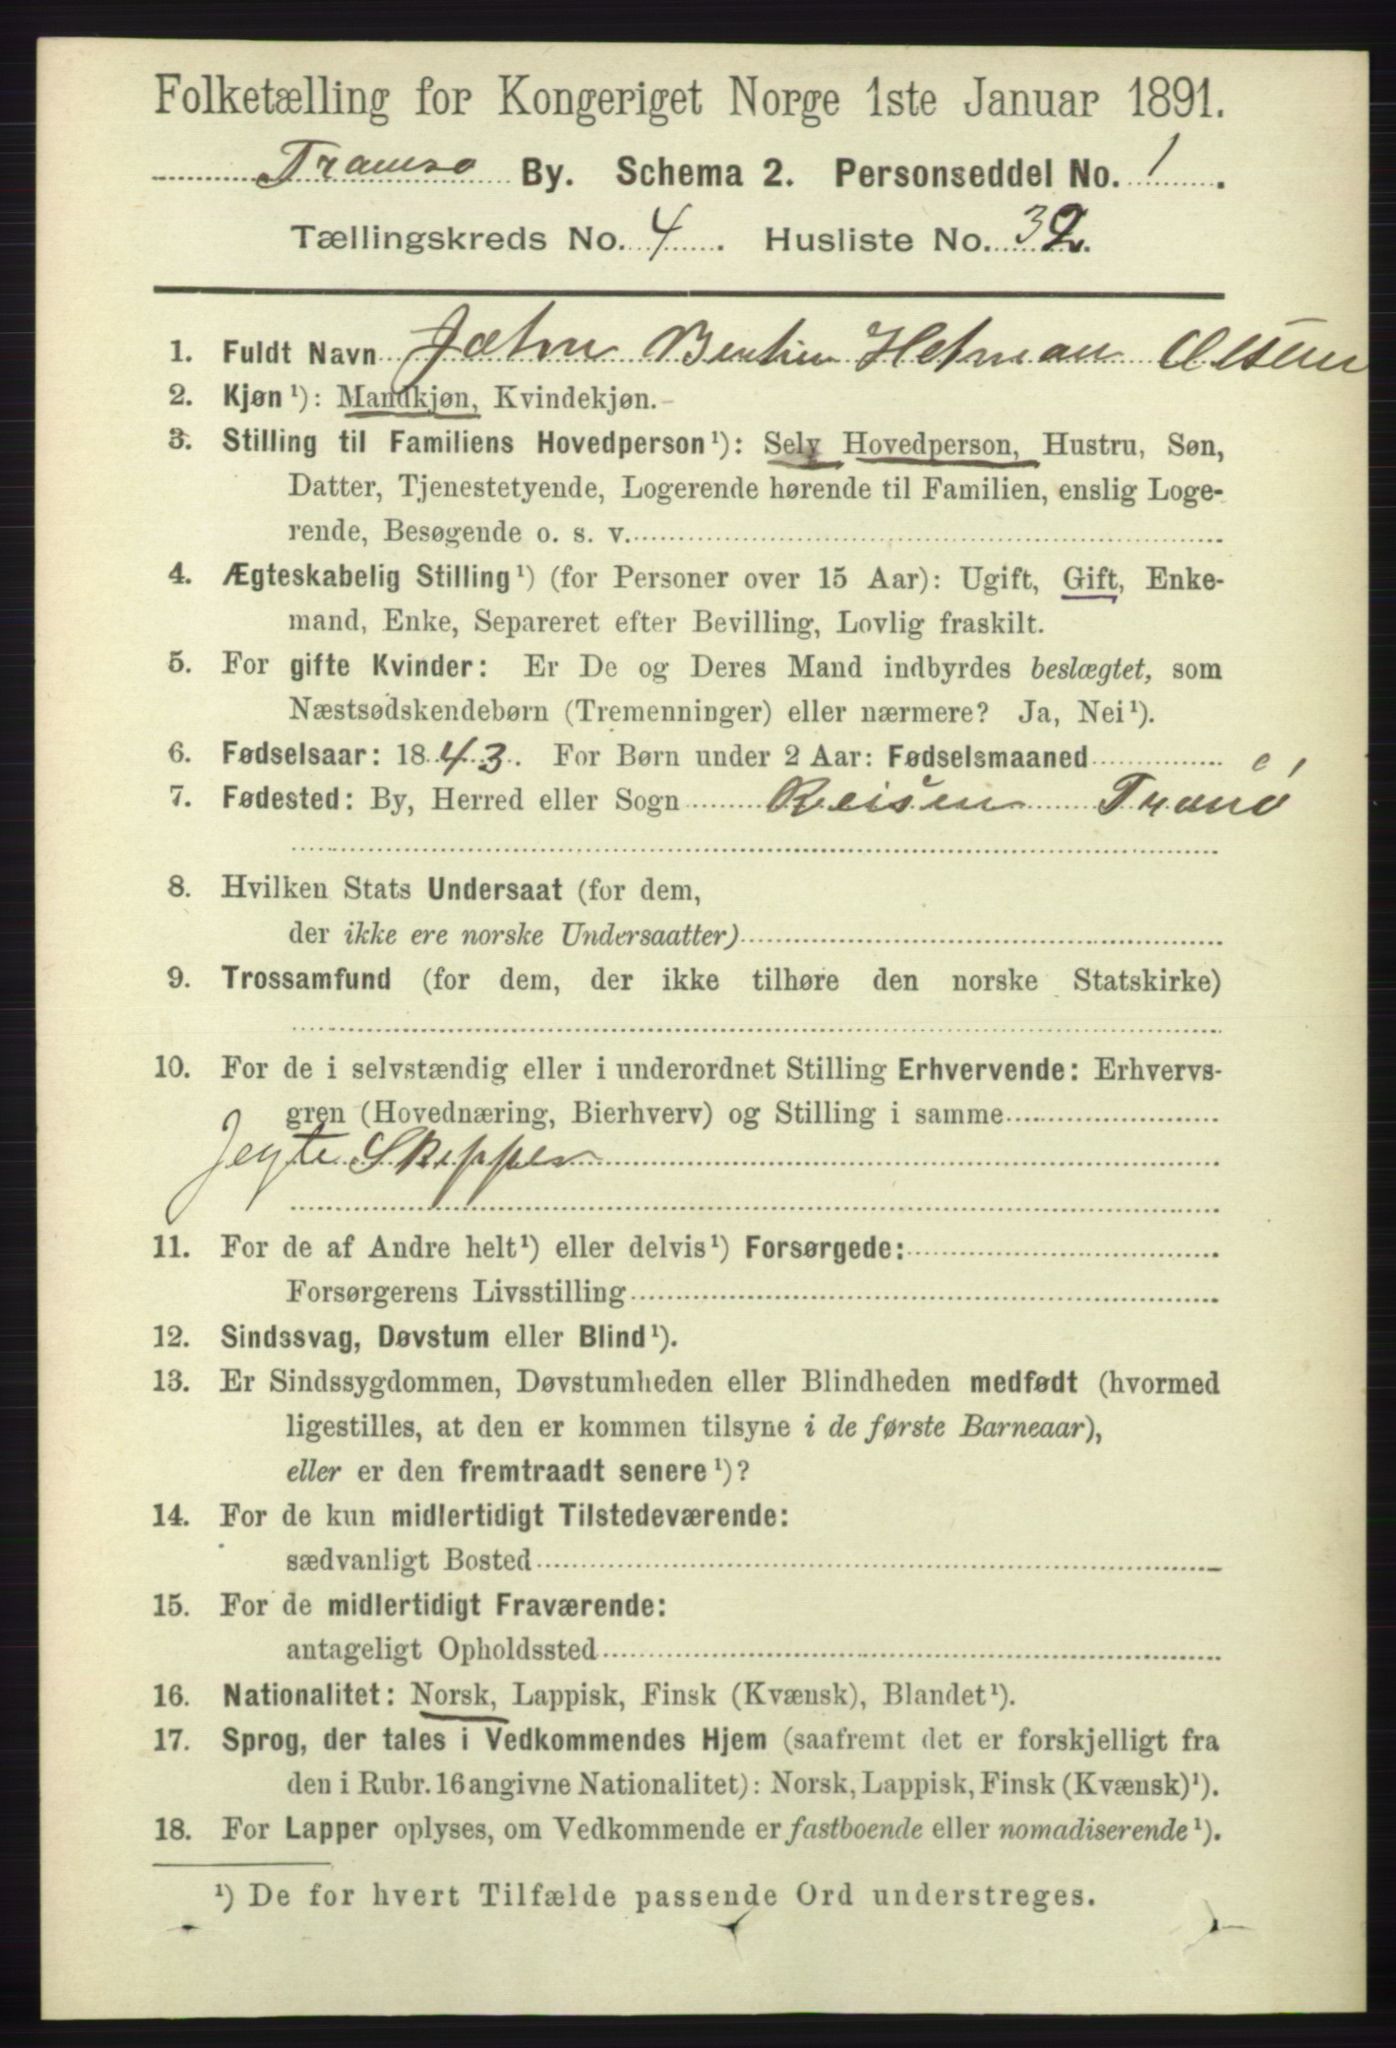 Folketælling for Kongeriget Norge 1ste Januar 1891.
Tromsø By. Schema 2. Personseddel No. 1.
Tællingskreds No. 4. Husliste No. 32.
1. Fuldt Navn John Olsen
2. Kjøn¹): Mandkjøn, Kvindekjøn.
3. Stilling til Familiens Hovedperson¹): Selv Hovedperson, Hustru, Søn,
Datter, Tjenestetyende, Logerende hørende til Familien, enslig Loge-
rende, Besøgende o. s. v.
4. Ægteskabelig Stilling¹) (for Personer over 15 Aar): Ugift, Gift, Enke-
mand, Enke, Separeret efter Bevilling, Lovlig fraskilt.
5. For gifte Kvinder: Er De og Deres Mand indbyrdes beslægtet, som
Næstsødskendebørn (Tremenninger) eller nærmere? Ja, Nei¹).
6. Fødselsaar: 1843. For Børn under 2 Aar: Fødselsmaaned
7. Fødested: By, Herred eller Sogn Reisen Tranö
8. Hvilken Stats Undersaat (for dem,
der ikke ere norske Undersaatter)
9. Trossamfund (for dem, der ikke tilhøre den norske Statskirke)
10. For de i selvstændig eller i underordnet Stilling Erhvervende: Erhvervs-
gren (Hovednæring, Bierhverv) og Stilling i samme
Jegte Skipper
11. For de af Andre helt¹) eller delvis¹) Forsørgede:
Forsørgerens Livsstilling
12. Sindssvag, Døvstum eller Blind¹).
13. Er Sindssygdommen, Døvstumheden eller Blindheden medfødt (hvormed
ligestilles, at den er kommen tilsyne i de første Barneaar),
eller er den fremtraadt senere¹)?
14. For de kun midlertidigt Tilstedeværende:
sædvanligt Bosted
15. For de midlertidigt Fraværende:
antageligt Opholdssted
16. Nationalitet: Norsk, Lappisk, Finsk (Kvænsk), Blandet¹).
17. Sprog, der tales i Vedkommendes Hjem (saafremt det er forskjelligt fra
den i Rubr. 16 angivne Nationalitet): Norsk, Lappisk, Finsk (Kvænsk)¹).
18. For Lapper oplyses, om Vedkommende er fastboende eller nomadiserende¹).
¹) De for hvert Tilfælde passende Ord understreges.